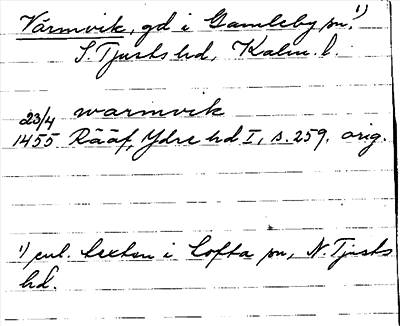 Värmvik, gd i Gamleby sn.¹)
S. Tjusts hd, Kalm. l.
23/4 warmvik
1455 Rääf, Ydre hd I, s. 259. orig.
¹) enl. texten i Lofta sn, N. Tjusts
hd.